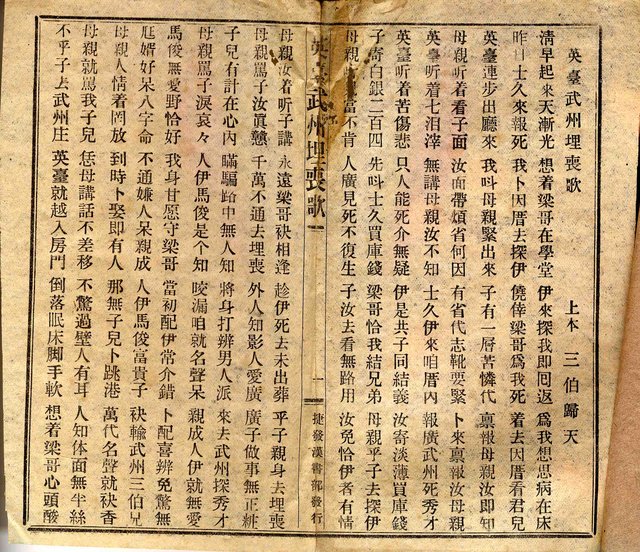 英臺武州埋喪歌 上本 三伯歸天
清早起來天漸光 想着梁哥在學堂 伊來探我即囘返 爲我想思病在床
昨日士久來報死 我卜因厝去探伊 僥倖梁哥爲我死 着去因厝看君兒
英臺連步出廳來 我叫母親緊出來 子有一層苦憐代 禀報母親汝即知
母親听着看子面 汝面帶煩省何因 有省代志靴要緊 卜來禀報汝母親
英臺听着七泪滓 無講母親汝不知 士久伊來咱厝內 報廣武州死秀才
英臺听着苦傷悲 只人能死介無疑 伊是共子同結義 汝寄淡薄買庫錢
子寄白銀二百四 先叫士久買庫錢 梁哥恰我結兄弟 母親乎子去探伊
母親 不肯 人廣見死不復生 子汝去看無路用 汝免恰伊者有情
英臺武州埋喪歌 一 捷發漢書部發行
母親汝着听子講 永遠梁哥袂相逢 趁伊死去未出葬 乎子親身去埋喪
母親罵子汝眞戇 千萬不通去埋喪 外人知影人愛廣 廣子做事無正粧
子兒有計在心內 瞞騙路中無人知 將身打辨男人派 來去武州探秀才
母親罵子淚哀々 人伊馬俊是个知 咬漏咱就名聲呆 親成人伊就無愛
馬俊無愛野恰好 我身甘愿守梁哥 當初配伊常介錯 卜配喜辨免驚無
尫婿好呆八字命 不通嫌人呆親成 人伊馬俊富貴子 袂輸武州三伯兄
母親人情着罔放 到時卜娶即有人 那無子兒卜跳港 萬代名聲就袂香
母親就罵我子兒 恁母講話不差移 不驚過壁人有耳 人知体面無半絲
不乎子去武州庄 英臺就越入房門 倒落眠床脚手軟 想着梁哥心頭酸